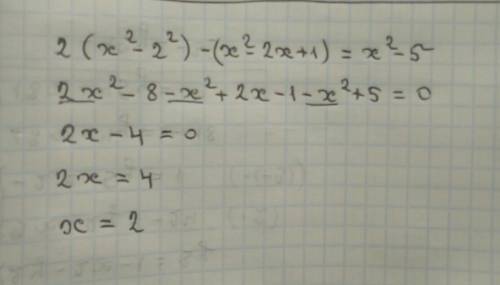 2 (x² - 2²) - (x² - 2x + 1) = x² - 5
2x² - 8 - x² + 2x - 1 - x² + 5 = 0
2x - 4 = 0
2x = 4
x = 2